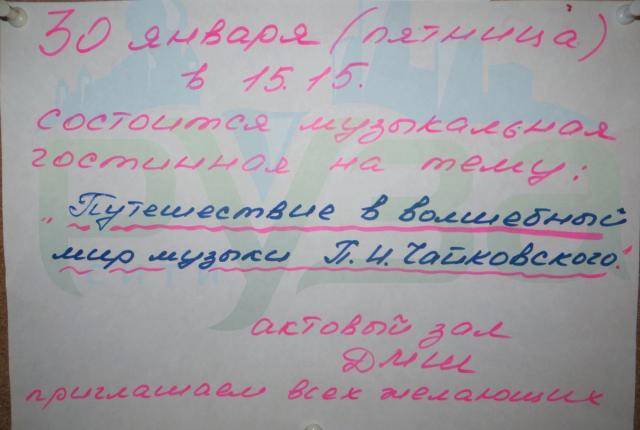 30 января (пятница)
в 15.15.
состоится музыкальная
гостинная на тему:
"Путешествие в волшебный
мир музыки П.И.Чайковского"
актовый зал
ДМШ
приглашаем всех желающих
РУЗА
СИТИ